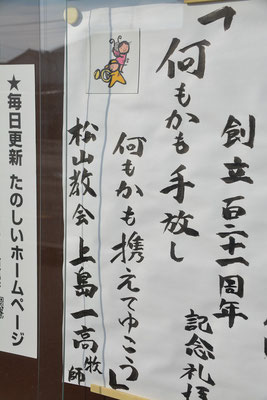 創立百二十一周年
記念礼拝
「何もかも手放し
何もかも携えてゆこう」
松山教会上島一高牧師
★毎日更新 たのしいホームページ